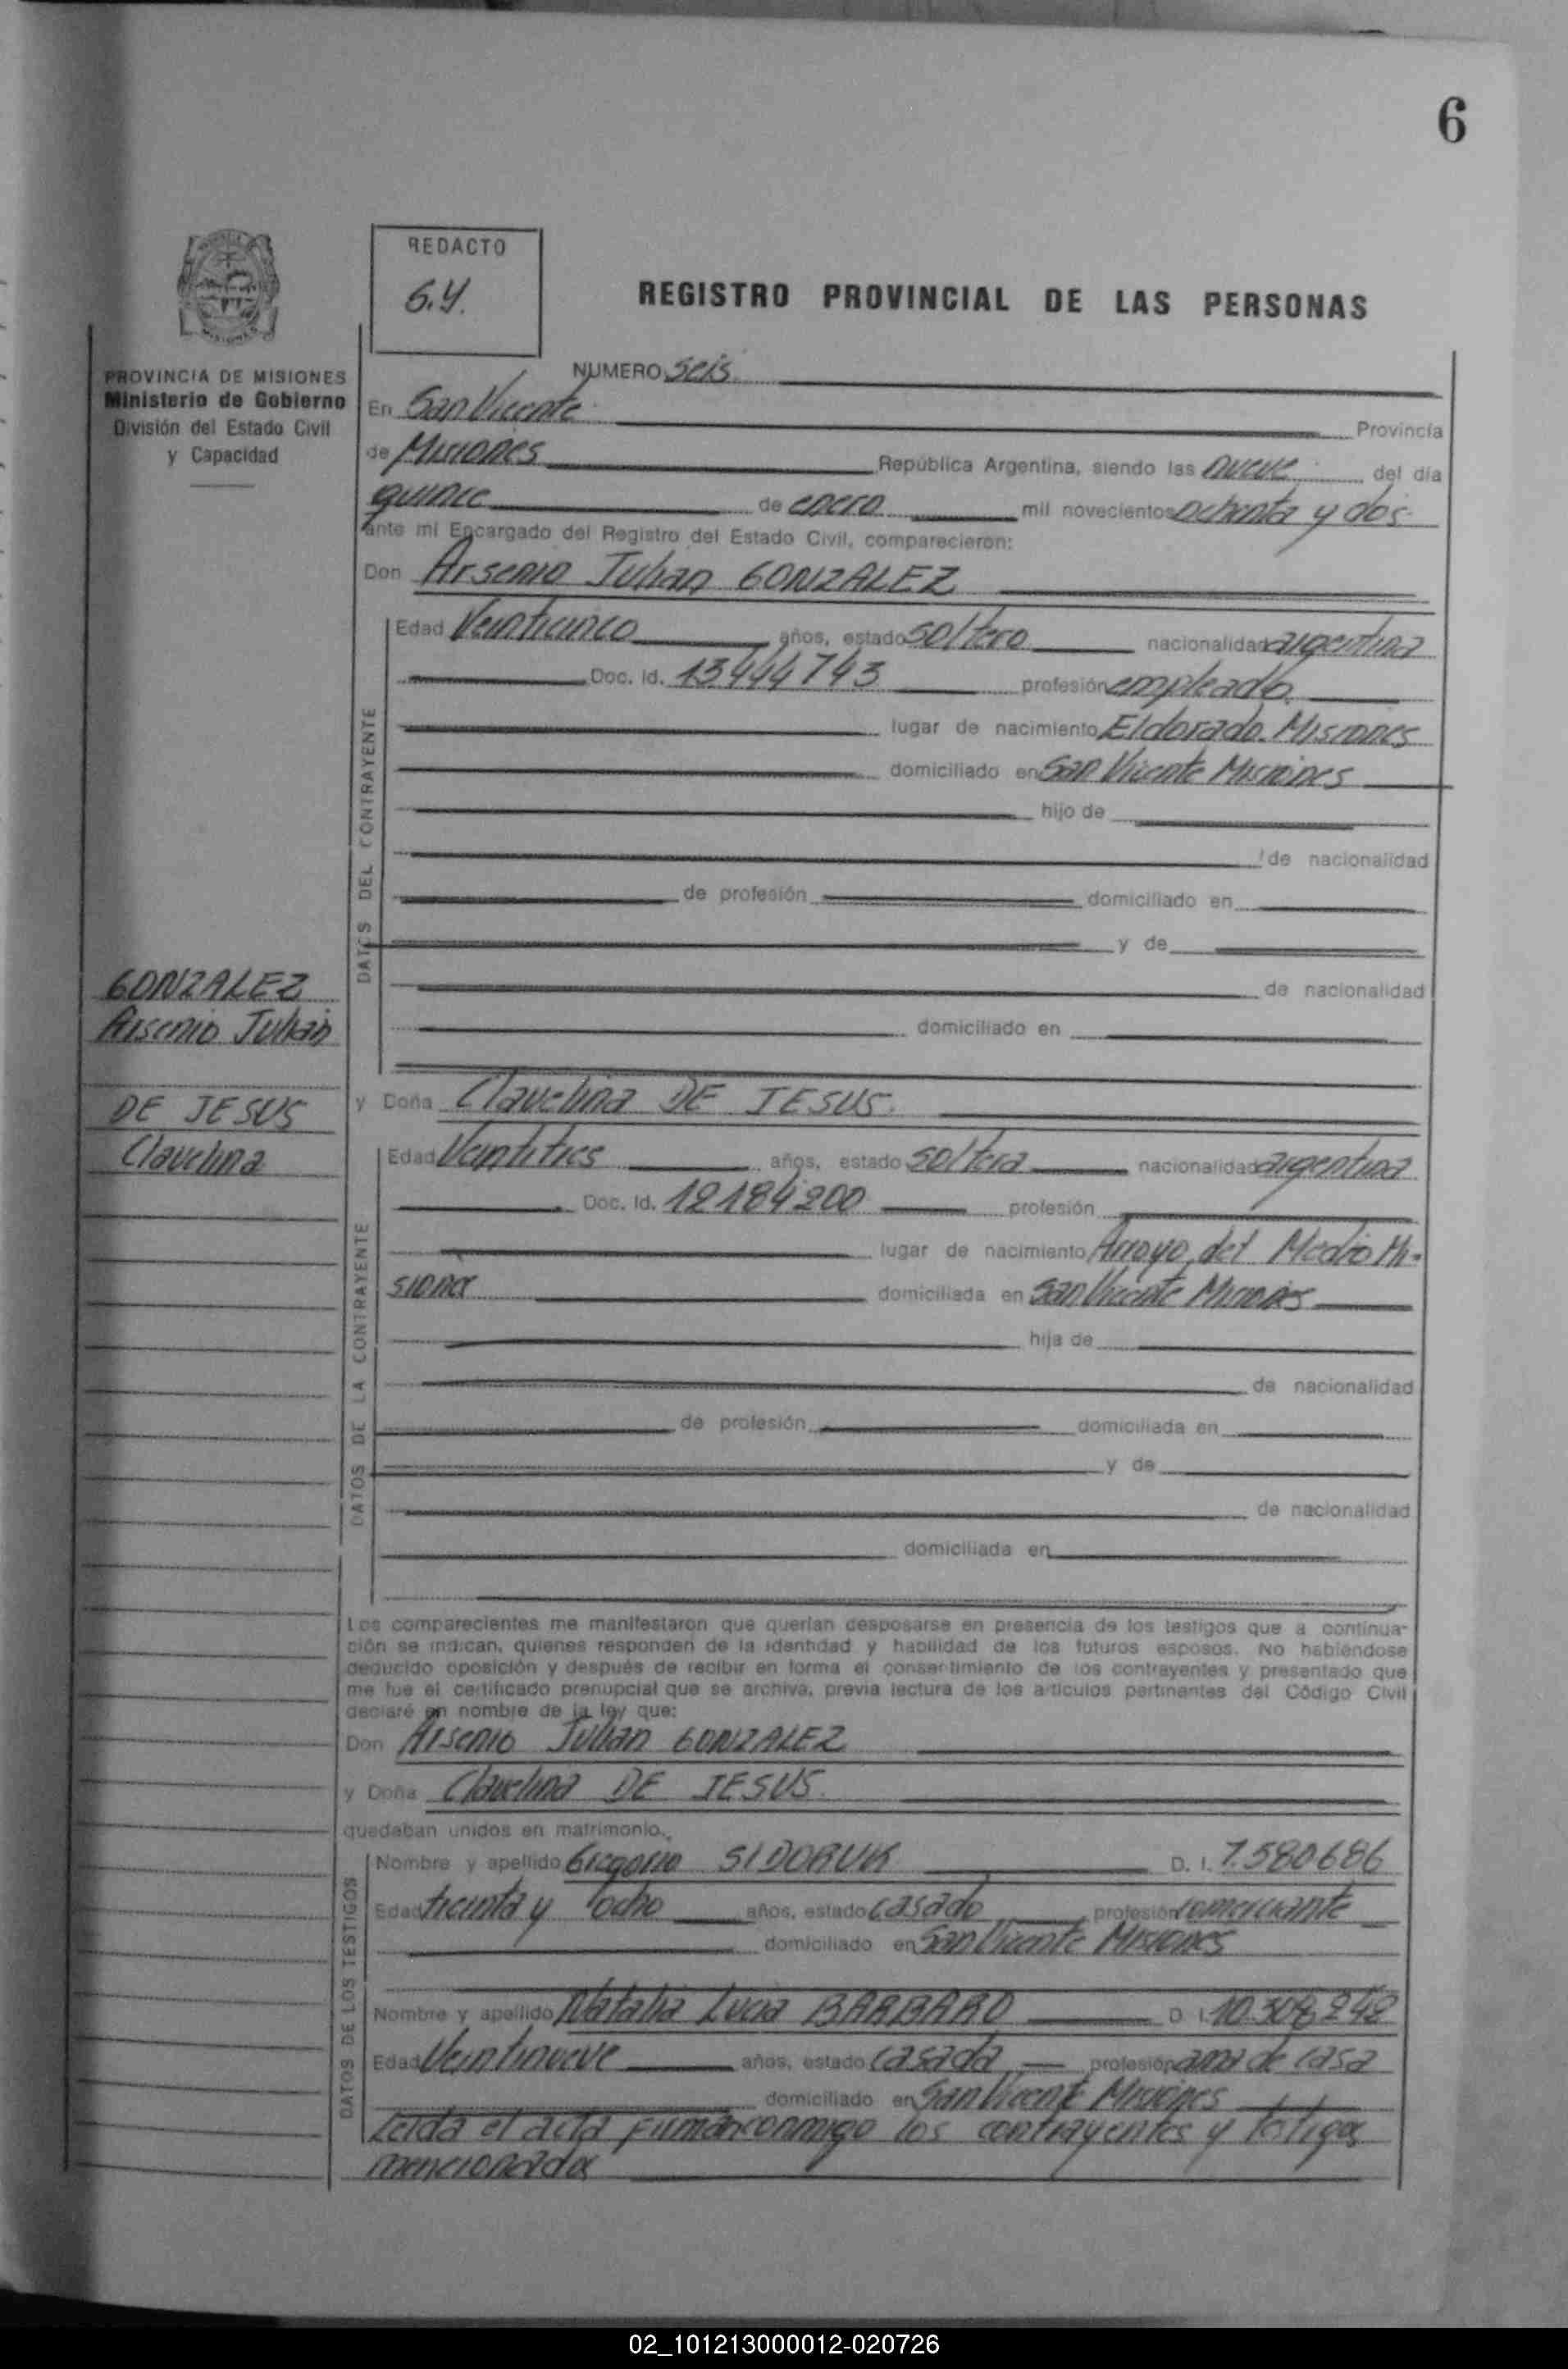 6
REDACTO
G.Y.
REGISTRO PROVINCIAL DE LAS PERSONAS
PROVINCIA DE MISIONES
Ministerio de Gobierno
División del Estado Civil
y Capacidad
NUMERO seis
En San Vicente Provincia
de Misiones República Argentina, siendo las nueve del día
quince de enero mil novecientos ochenta y dos
ante mi Encargado del Registro del Estado Civil, comparecieron:
Don Arsenio Julian GONZALEZ
DATOS DEL CONTRAYENTE
Edad Veinticinco años, estado soltero nacionalidad argentina
Doc. Id. 13444743 profesión empleado
lugar de nacimiento Eldorado Misiones
domiciliado en San Vicente Misiones
hijo de
de nacionalidad
de profesión domiciliado en
y de
de nacionalidad
domiciliado en
GONZALEZ
Arsenio Julian
DE JESUS
Clavelina
y Doña Clavelina DE JESUS.
DATOS DE LA CONTRAYENTE
Edad Veintitres años, estado soltera nacionalidad argentina
Doc. Id. 12184200 profesión
lugar de nacimiento Arroyo del Medio Mi-
siones domiciliada en San Vicente Misiones
hija de
de nacionalidad
de profesión domiciliada en
y de
de nacionalidad
domiciliada en
Los comparecientes me manifestaron que querían desposarse en presencia de los testigos que a continua-
ción se indican, quienes responden de la identidad y habilidad de los futuros esposos. No habiéndose
deducido oposición y después de recibir en forma el consentimiento de los contrayentes y presentado que
me fue el certificado prenupcial que se archiva, previa lectura de los artículos pertinentes del Código Civil
declaré en nombre de la ley que:
Don Arsenio Julian GONZALEZ
y Doña Clavelina DE JESUS.
quedaban unidos en matrimonio.
DATOS DE LOS TESTIGOS
Nombre y apellido Gregorio SIDORUK D. I. 7.580686
Edad treinta y ocho años, estado casado profesión comerciante
domiciliado en San Vicente Misiones
Nombre y apellido Natalia Lucia BARBARO D. I. 10.308248
Edad Veintinueve años, estado casada profesión ama de casa
domiciliado en San Vicente Misiones
Leida el acta firman conmigo los contrayentes y testigos
mencionados
02_101213000012-020726